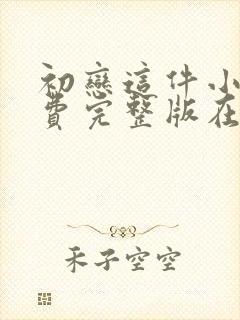 初戀這件小
費完整版在
禾子空空